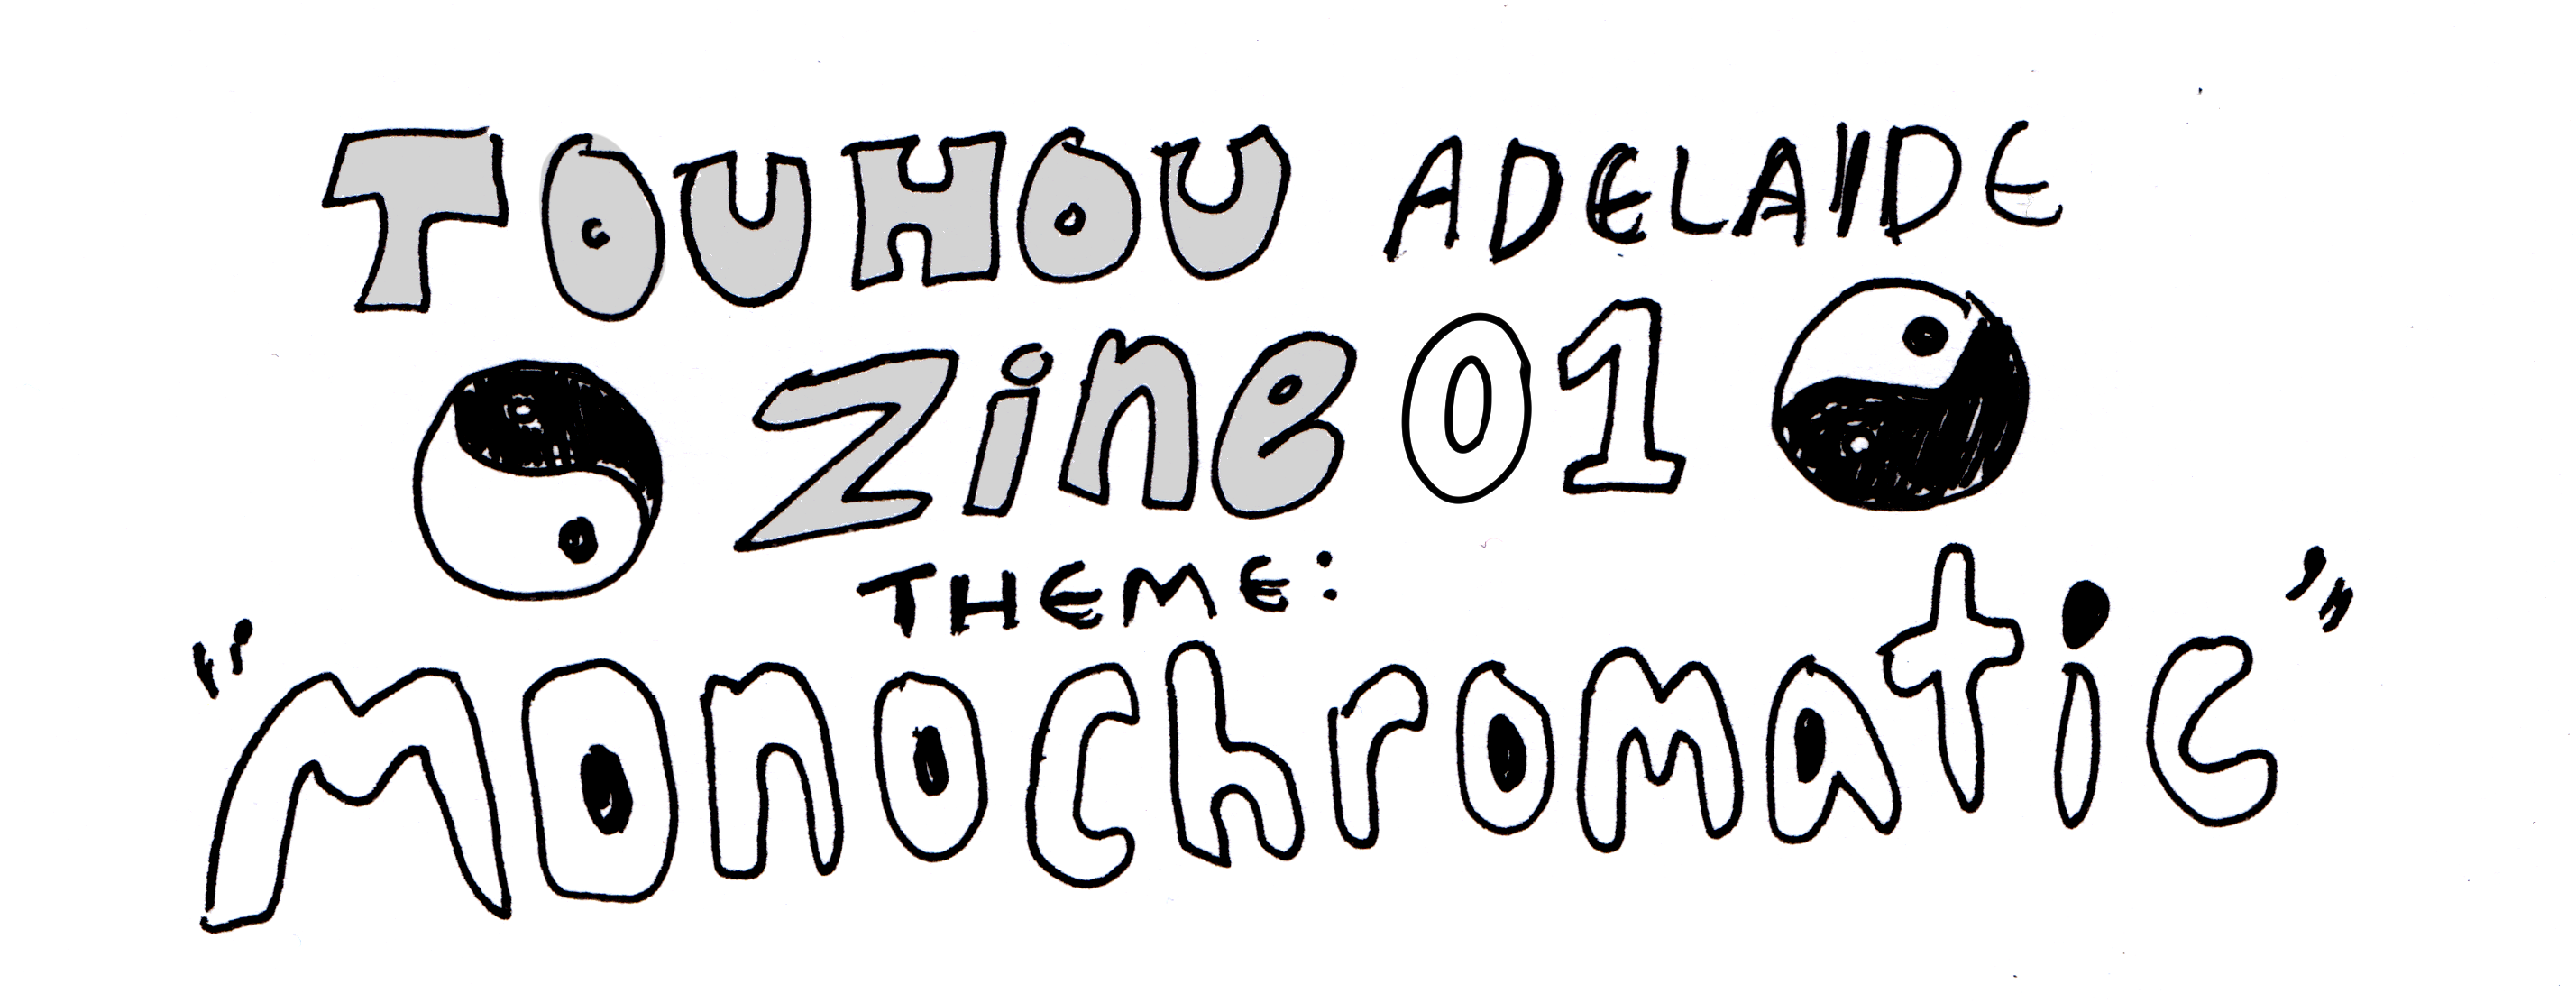 TOUHOU ADELAIDE
Zine 01
THEME:
"Monochromatic"